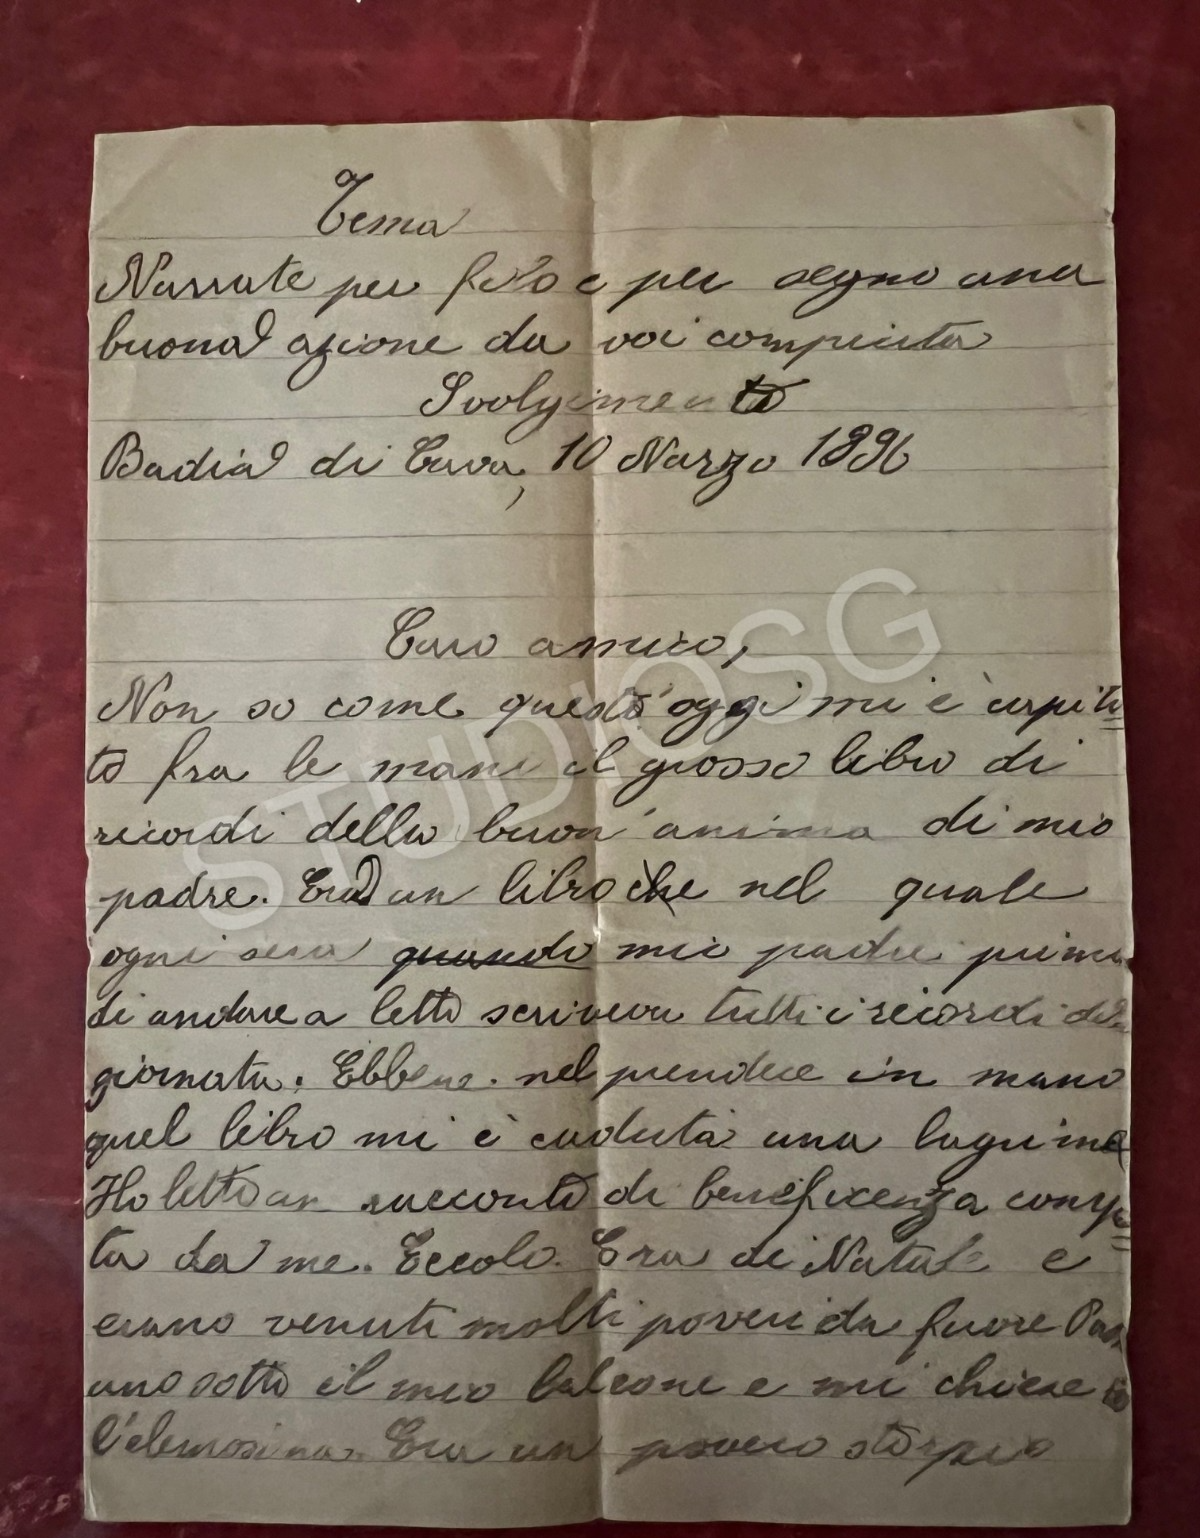 Tema
Narrate per filo e per segno una
buona azione da voi compiuta
Svolgimento
Badia di Cava, 10 Marzo 1896
Caro amico,
Non so come quest'oggi mi è capita=
to fra le mani il grosso libro di
ricordi della buon'anima di mio
padre. Era un libro che nel quale
ogni sera quando mio padre prima
di andare a letto scriveva tutti i ricordi della
giornata. Ebbene. nel prendere in mano
quel libro mi è caduta una lagrima
Ho letto un racconto di beneficenza comp=
ta da me. Eccolo. Era di Natale e
erano venuti molti poveri da fuore
uno sotto il mio balcone e mi chiese
l'elemosina. Era un povero storpio
STUDIOSG